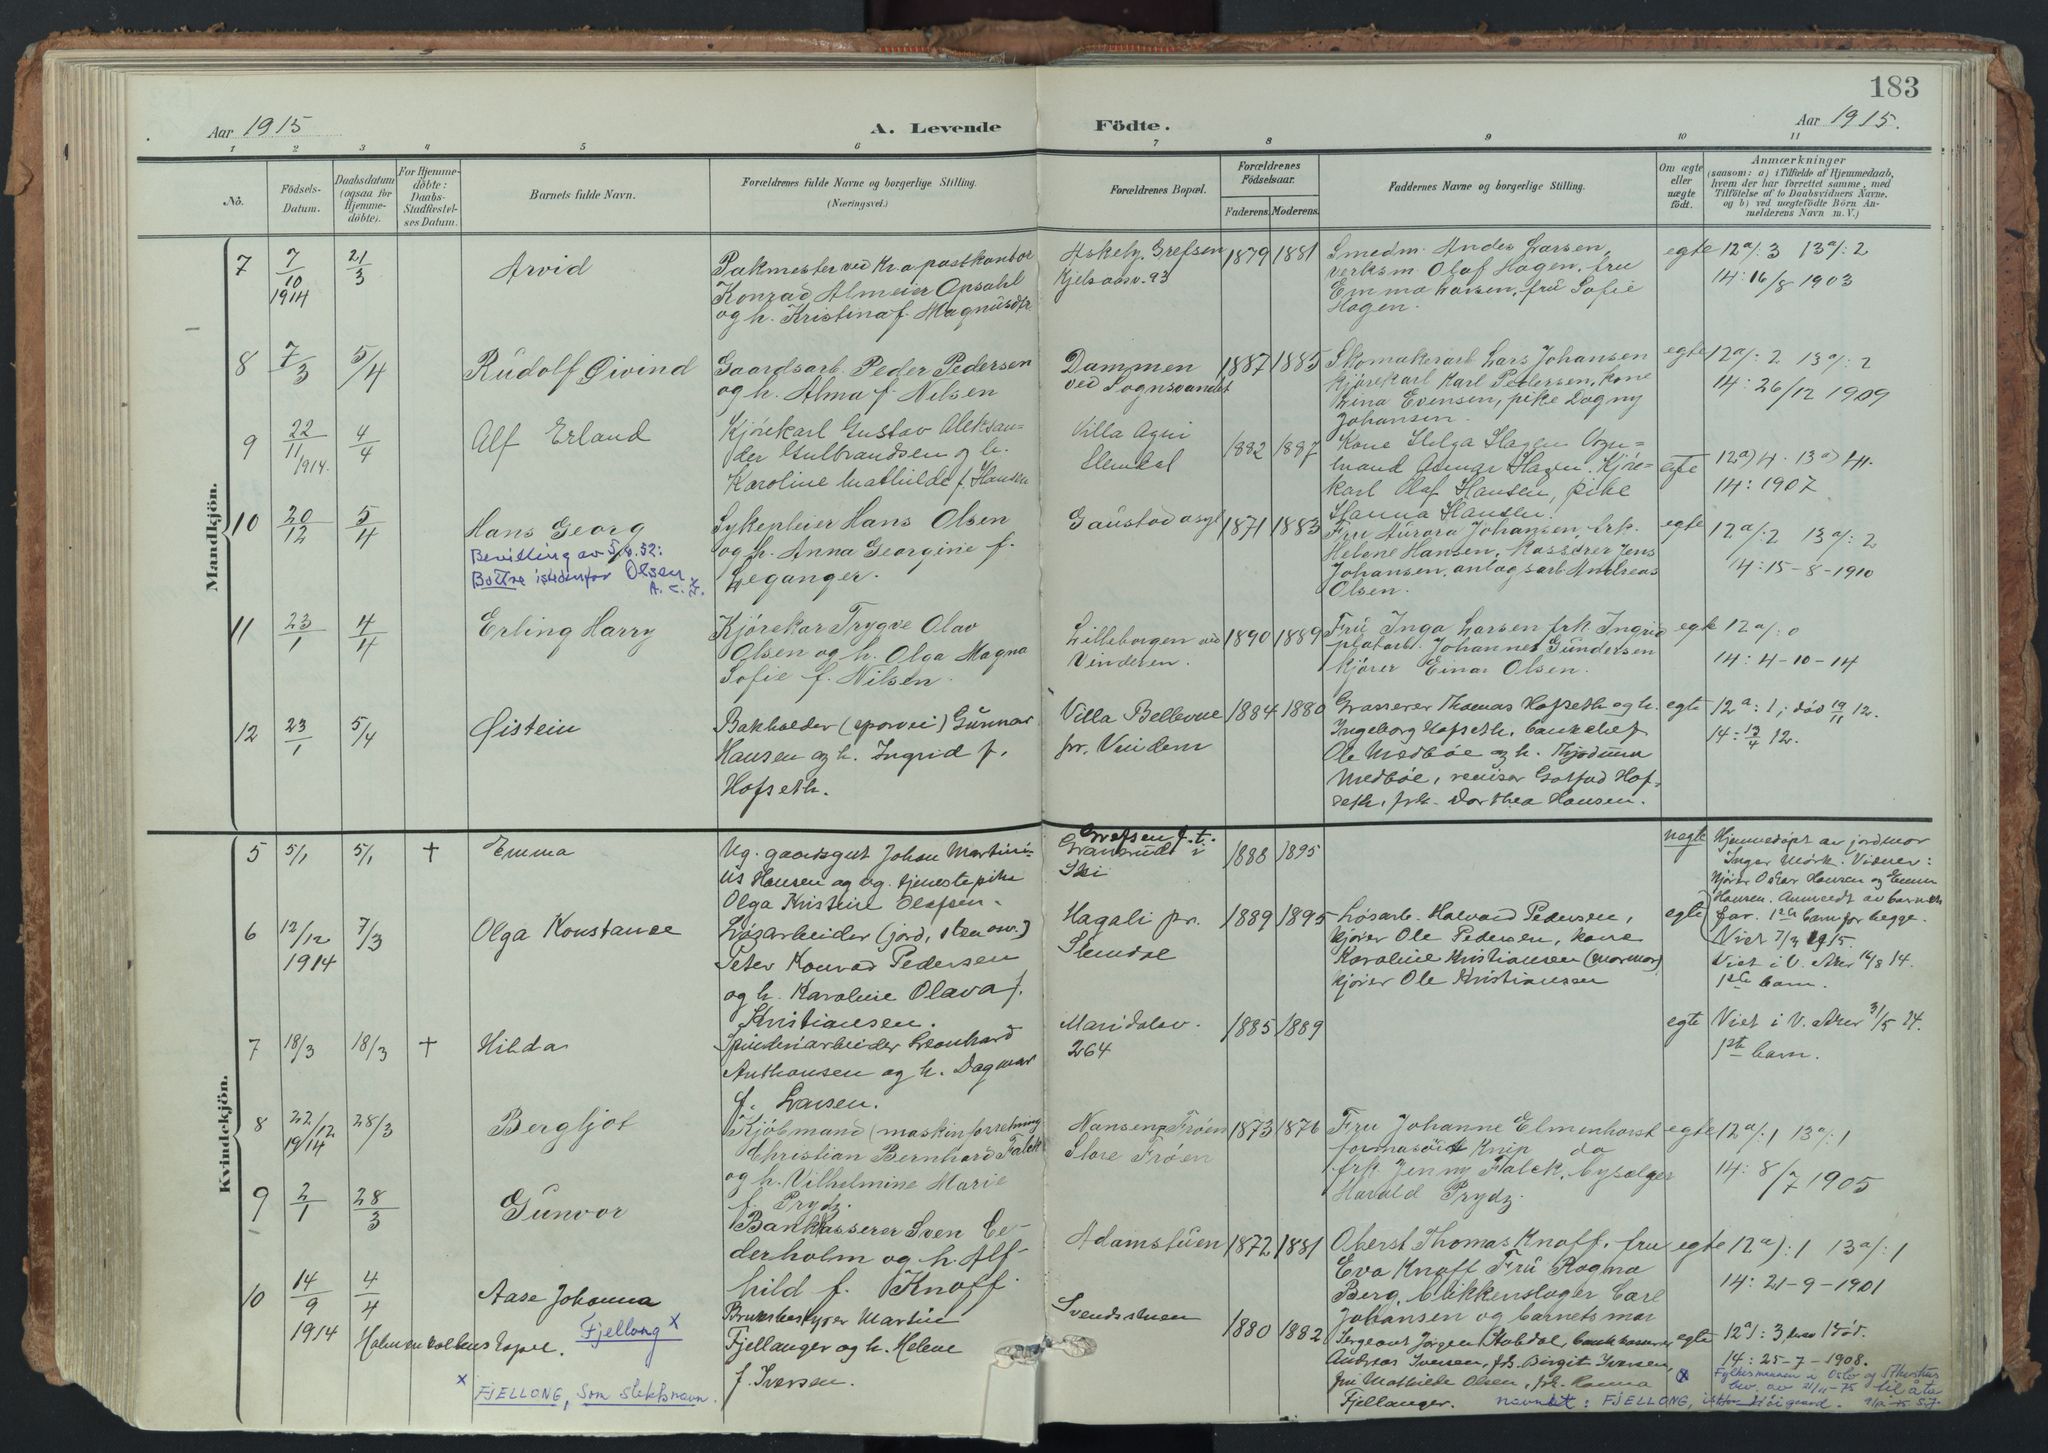 183
Aar 1915
A. Levende
Födte.
Aar 1915.
1 2 3 4 5 6 7 8 9 10 11
No.
Födsels-
Datum.
Daabsdatum
(ogsaa for
Hjemme-
döbte).
For Hjemme-
döbte:
Daabs-
Stadfæstel-
ses Datum.
Barnets fulde Navn.
Forældrenes fulde Navne og borgerlige Stilling.
(Næringsvei.)
Forældrenes Bopæl.
Forældrenes
Födselsaar.
Faderens. Moderens.
Faddernes Navne og borgerlige Stilling.
Om ægte
eller
uægte
födt.
Anmærkninger
(saasom: a) i Tilfælde af Hjemmedaab,
hvem der har forrettet samme, med
Tilföielse af to Daabsvidners Navne.
og b) ved uægtefödte Börn An-
melderens Navn m. V.)
Mandkjön.
7
7/10
1914
21/3
Arvid
Pakmester ved Kr.a postkontor
Konrad Almeier Opsahl
og h. Kristina f. Magnusdtr
Askely, Grefsen
Kjelsaasv. 93
1879 1881
Smedm. Andes Larsen,
verksm. Olaf Hagen, fru
Emma Larsen, fru Sofie
Hagen.
egte
12a/: 3 13a/: 2
14: 16/8-1903
8
7/3
5/4
Rudolf Øivind
Gaardsarb. Peder Pedersen
og h. Alma f. Nilsen
Dammen
ved Sognsvandet
1887 1885
Skomakerarb. Lars Johansen
kjørekarl Karl Pedersen, Kone
Lina Evensen, pike Dagny
Johansen.
egte
12a/: 2 13a/: 2
14: 26/12 1909
9
22/11
1914.
4/4
Alf Erland
Kjørekarl Gustav Aleksan=
der Gulbrandsen og h.
Karoline Mathilde f. Hansen
Villa Agni
Slemdal
1882 1887
Kone Helga Hagen Vogn=
mand Hagen. Kjøre=
karl Olaf Hansen, pike
Hanna Hansen.
egte
12a) 4. 13a) 4.
14: 1907
10
20/12
5/4
Hans Georg
Bevilling av 5/8.52:
Bottre istedenfor Olsen
Sykepleier Hans Olsen
og h. Anna Georgine f.
Leganger.
Gaustad asyl
1871 1883
Fru Aurora Johansen, frk.
Helene Hansen, kasserer Jens
Johansen, anlagsarb. Andreas
Olsen.
egte
12a/: 2 13a/: 2
14: 15-8-1910
11
23/1
4/4
Erling Harry
Kjørekar Trygve Olav
Olsen og h. Olga Magna
Sofie f. Nilsen.
Lilleborgen ved
Vinderen.
1890 1889
Fru Inga Larsen frk. Ingrid
platarb. Johannes Gundersen
kjører Einar Olsen.
egte
12a/: 0
14: 4-10-14
12
23/1
5/4
Øistein
Bakholder (sporvei) Gunnar
Hansen og h. Ingrid f.
Hofseth.
Villa Bellevue
pr. Vindern
1884 1880
Grosserer Thomas Hofseth og h.
Ingeborg Hofseth, bankchef
Ole Medbøe og h.
Medbøe, revisor Hof=
seth, frk. Dorthea Hansen.
egte
12a: 1, død 19/11 12.
14: 13/4 12.
Kvindekjön.
5
5/1
5/1
+
Emma
Ug. gaardsgut Johan Martini=
us Hansen og ug. tjenestepike
Olga Kristine Olafsen.
Grefsen f. t. i
Ski
1888 1895
uegte
Hjemmedøpt av jordmor
Inger Mørk. Vidner:
kjører Oskar Hansen og Emma
Hansen. Anmeldt av barnets
far. 1ste barn for begge.
Viet 7/3 1915.
6
12/12
1914
7/3
Olga Konstanse
Løsarbeider (jord, sten osv.)
Peter Konrad Pedersen
og h. Karoline Olava f.
Kristiansen.
Hagali pr.
Slemdal
1889 1895
Løsarb. Halvard Pedersen,
kjører Ole Pedersen, kone
Karoline Kristiansen (mormor)
kjører Ole Kristiansen
egte
Viet i V. Aker 16/8 14.
1ste barn.
7
18/3
18/3
+
Hilda
Spinderiarbeider Leonhard
Anthonsen og h. Dagmar
f. Larsen.
Maridalsv.
264
1885 1889
egte
Viet i V. Aker 31/5 14.
1ste barn.
8
22/12
1914
28/3
Bergljot
Kjøbmand (maskinforretning
Christian Bernhard Falck
og h. Vilhelmine Marie
f. Prydz.
Nansen, Frøen
Store Frøen
1873 1876
Fru Johanne Elmenhorst
Knip do
frk. Jenny Falck, bysælger
Harald Prydz.
egte
12a/: 1 13a/: 1
14: 8/7 1905
9
2/1
28/3
Gunvor
Bankkasserer Sven Ce-
derholm og h. Alf-
hild f. Knoff.
Adamstuen
1872 1881
Oberst Thomas Knoff, fru
Eva Knoff Fru Ragna
Berg, blikkenslager Carl
Johansen og barnets mor
egte
12a/: 1 13a/: 1
14: 21-9-1901
10
14/9
1914
4/4
Aase Johanna
Fjellong x
Holmenkollens kapel.
x FJELLONG, som slektsnavn.
Bruksbestyrer Martin
Fjellanger og h. Helene
f. Iversen.
Svendstuen
1880 1882
Sergeant Jørgen Stabdal, bankkasserer
Andreas Iversen, frk. Birgit Iversen,
fru Mathilde Olsen, frk. Hanna
Fjellanger.
egte
12a/: 3 hvorav 1 død.
14: 25-7-1908.
Fylkesmannen i Oslo og Akershus
bev. av 21/11-75 til å ta
navnet: FJELLONG, istf.